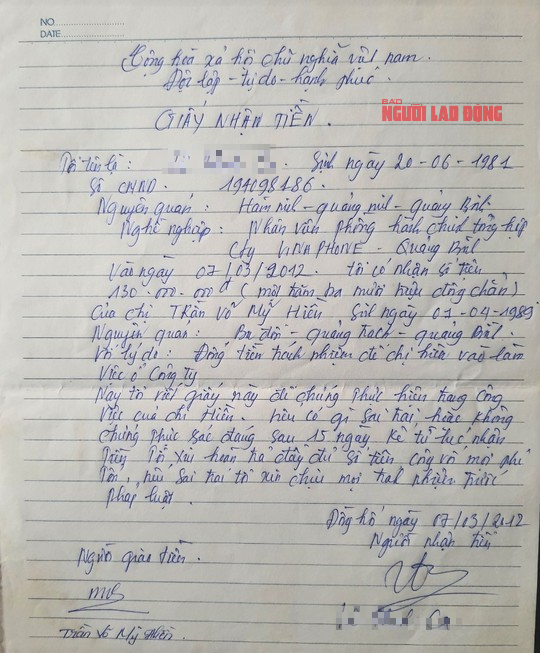 NO.
DATE
Cộng hoà xả hội chủ nghĩa việt nam.
Độc lập - tự do - hạnh phúc.
BÁO
NGƯỜI LAO ĐỘNG
GIẤY NHẬN TIỀN.
Tôi tên là : Sinh ngày 20-06-1981
Số CMND. 194098186.
Nguyên quán : Hàm niu - quảng niu - quảng Bình
Nghề nghiệp : Nhân văn phòng hành chinh tổng hợp
Cty VINAPHONE - Quảng Bình
Vào ngày 07/03/2012. tôi có nhận số tiền
130.000.000đ (một trăm ba mươi triệu đồng chẳn)
Của chị TRẦN VÕ MỸ HIỀN Sinh ngày 01-04-1989
Nguyên quán : Ba đồn - quảng trach - quảng Bình.
Với lý do : Đóng tiền trách nhiệm để chị hiền vào làm
Việc ở Công ty
Nay tôi viết giấy này để chứng thực hiện trạng công
Việc của chị Hiền. nếu có gì sai trái hoặc không
chứng thực xác đáng sau 15 ngày kể từ lúc nhận
tiền, Tôi xin hoàn trả đầy đủ số tiền cộng với mọi phí
Tổn, nếu sai trái tôi xin chịu mọi trách nhiệm trước
pháp luật.
Đồng hới ngày 07/03/2012
Người nhận tiền
Người giao tiền.
Trần Võ Mỹ Hiền